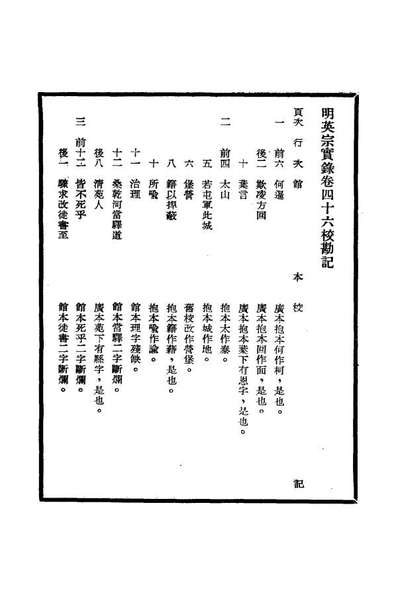 明英宗實錄卷四十六校勘記
頁次 行次 館本 校記
一 前六 何遷 廣本抱本何作柯，是也。
後二 欺凌方回 廣本抱本回作面，是也。
十 葉言 廣本抱本葉下有恩字，是也。
二 前四 太山 抱本太作泰。
五 若屯軍此城 抱本城作地。
六 堡營 舊校改作營堡。
八 籍以捍蔽 抱本籍作藉，是也。
十 所喻 抱本喻作諭。
十一 治理 館本理字殘缺。
十二 桑乾河當驛道 館本當驛二字斷爛。
後八 清苑人 廣本苑下有縣字，是也。
三 前十二 皆不死乎 館本死乎二字斷爛。
後一 驥求改徒書至 館本徒書二字斷爛。